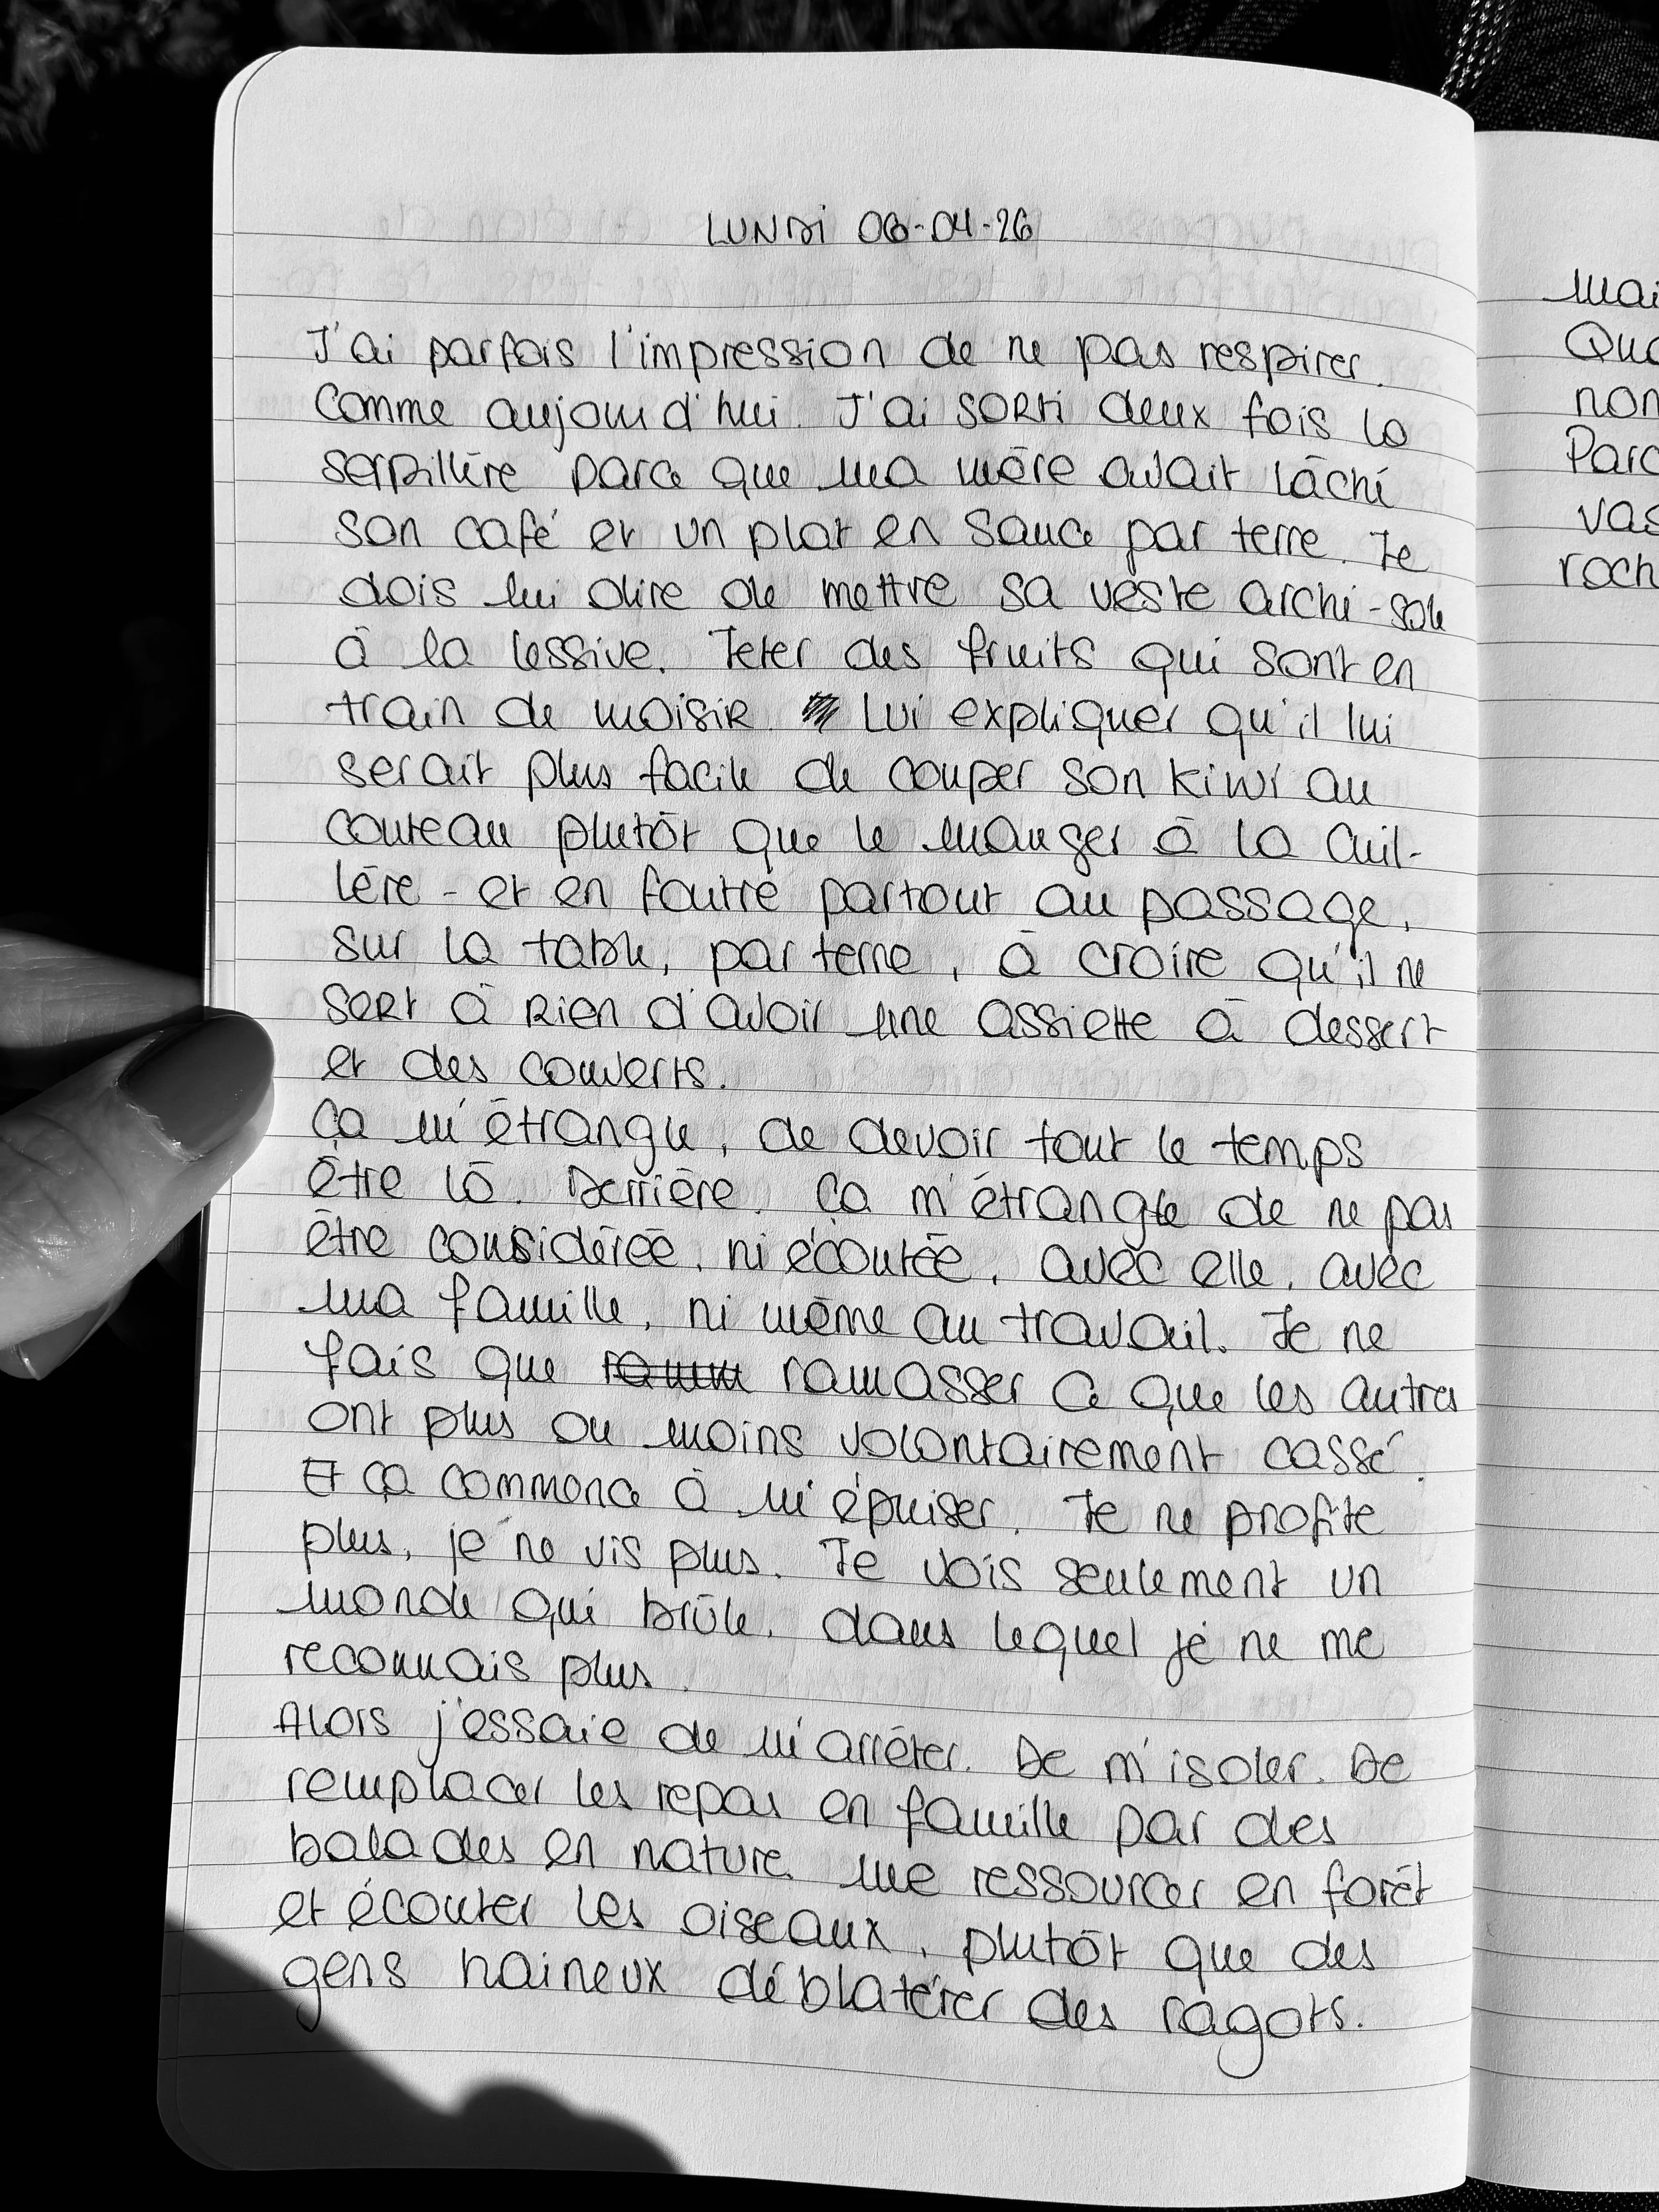 LUNDI 06-04-26
J'ai parfois l'impression de ne pas respirer.
Comme aujourd'hui. J'ai sorti deux fois la
serpillère parce que ma mère avait lâché
son café et un plat en sauce par terre. Je
dois lui dire de mettre sa veste archi-sale
à la lessive. Jeter des fruits qui sont en
train de moisir. Lui expliquer qu'il lui
serait plus facile de couper son kiwi au
couteau plutôt que le manger à la cuil-
lère - et en foutre partout au passage,
sur la table, par terre, à croire qu'il ne
sert à rien d'avoir une assiette à dessert
et des couverts.
Ça m'étrangle, de devoir tout le temps
être là. Derrière. Ça m'étrangle de ne pas
être considérée, ni écoutée, avec elle, avec
ma famille, ni même au travail. Je ne
fais que ramasser ce que les autres
ont plus ou moins volontairement cassé.
Et ça commence à m'épuiser. Je ne profite
plus, je ne vis plus. Je vois seulement un
monde qui brûle, dans lequel je ne me
reconnais plus.
Alors j'essaie de m'arrêter. De m'isoler. De
remplacer les repas en famille par des
balades en nature. Me ressourcer en forêt
et écouter les oiseaux, plutôt que des
gens haineux déblatérer des ragots.
mai
Qua
non
Parc
vas
roch